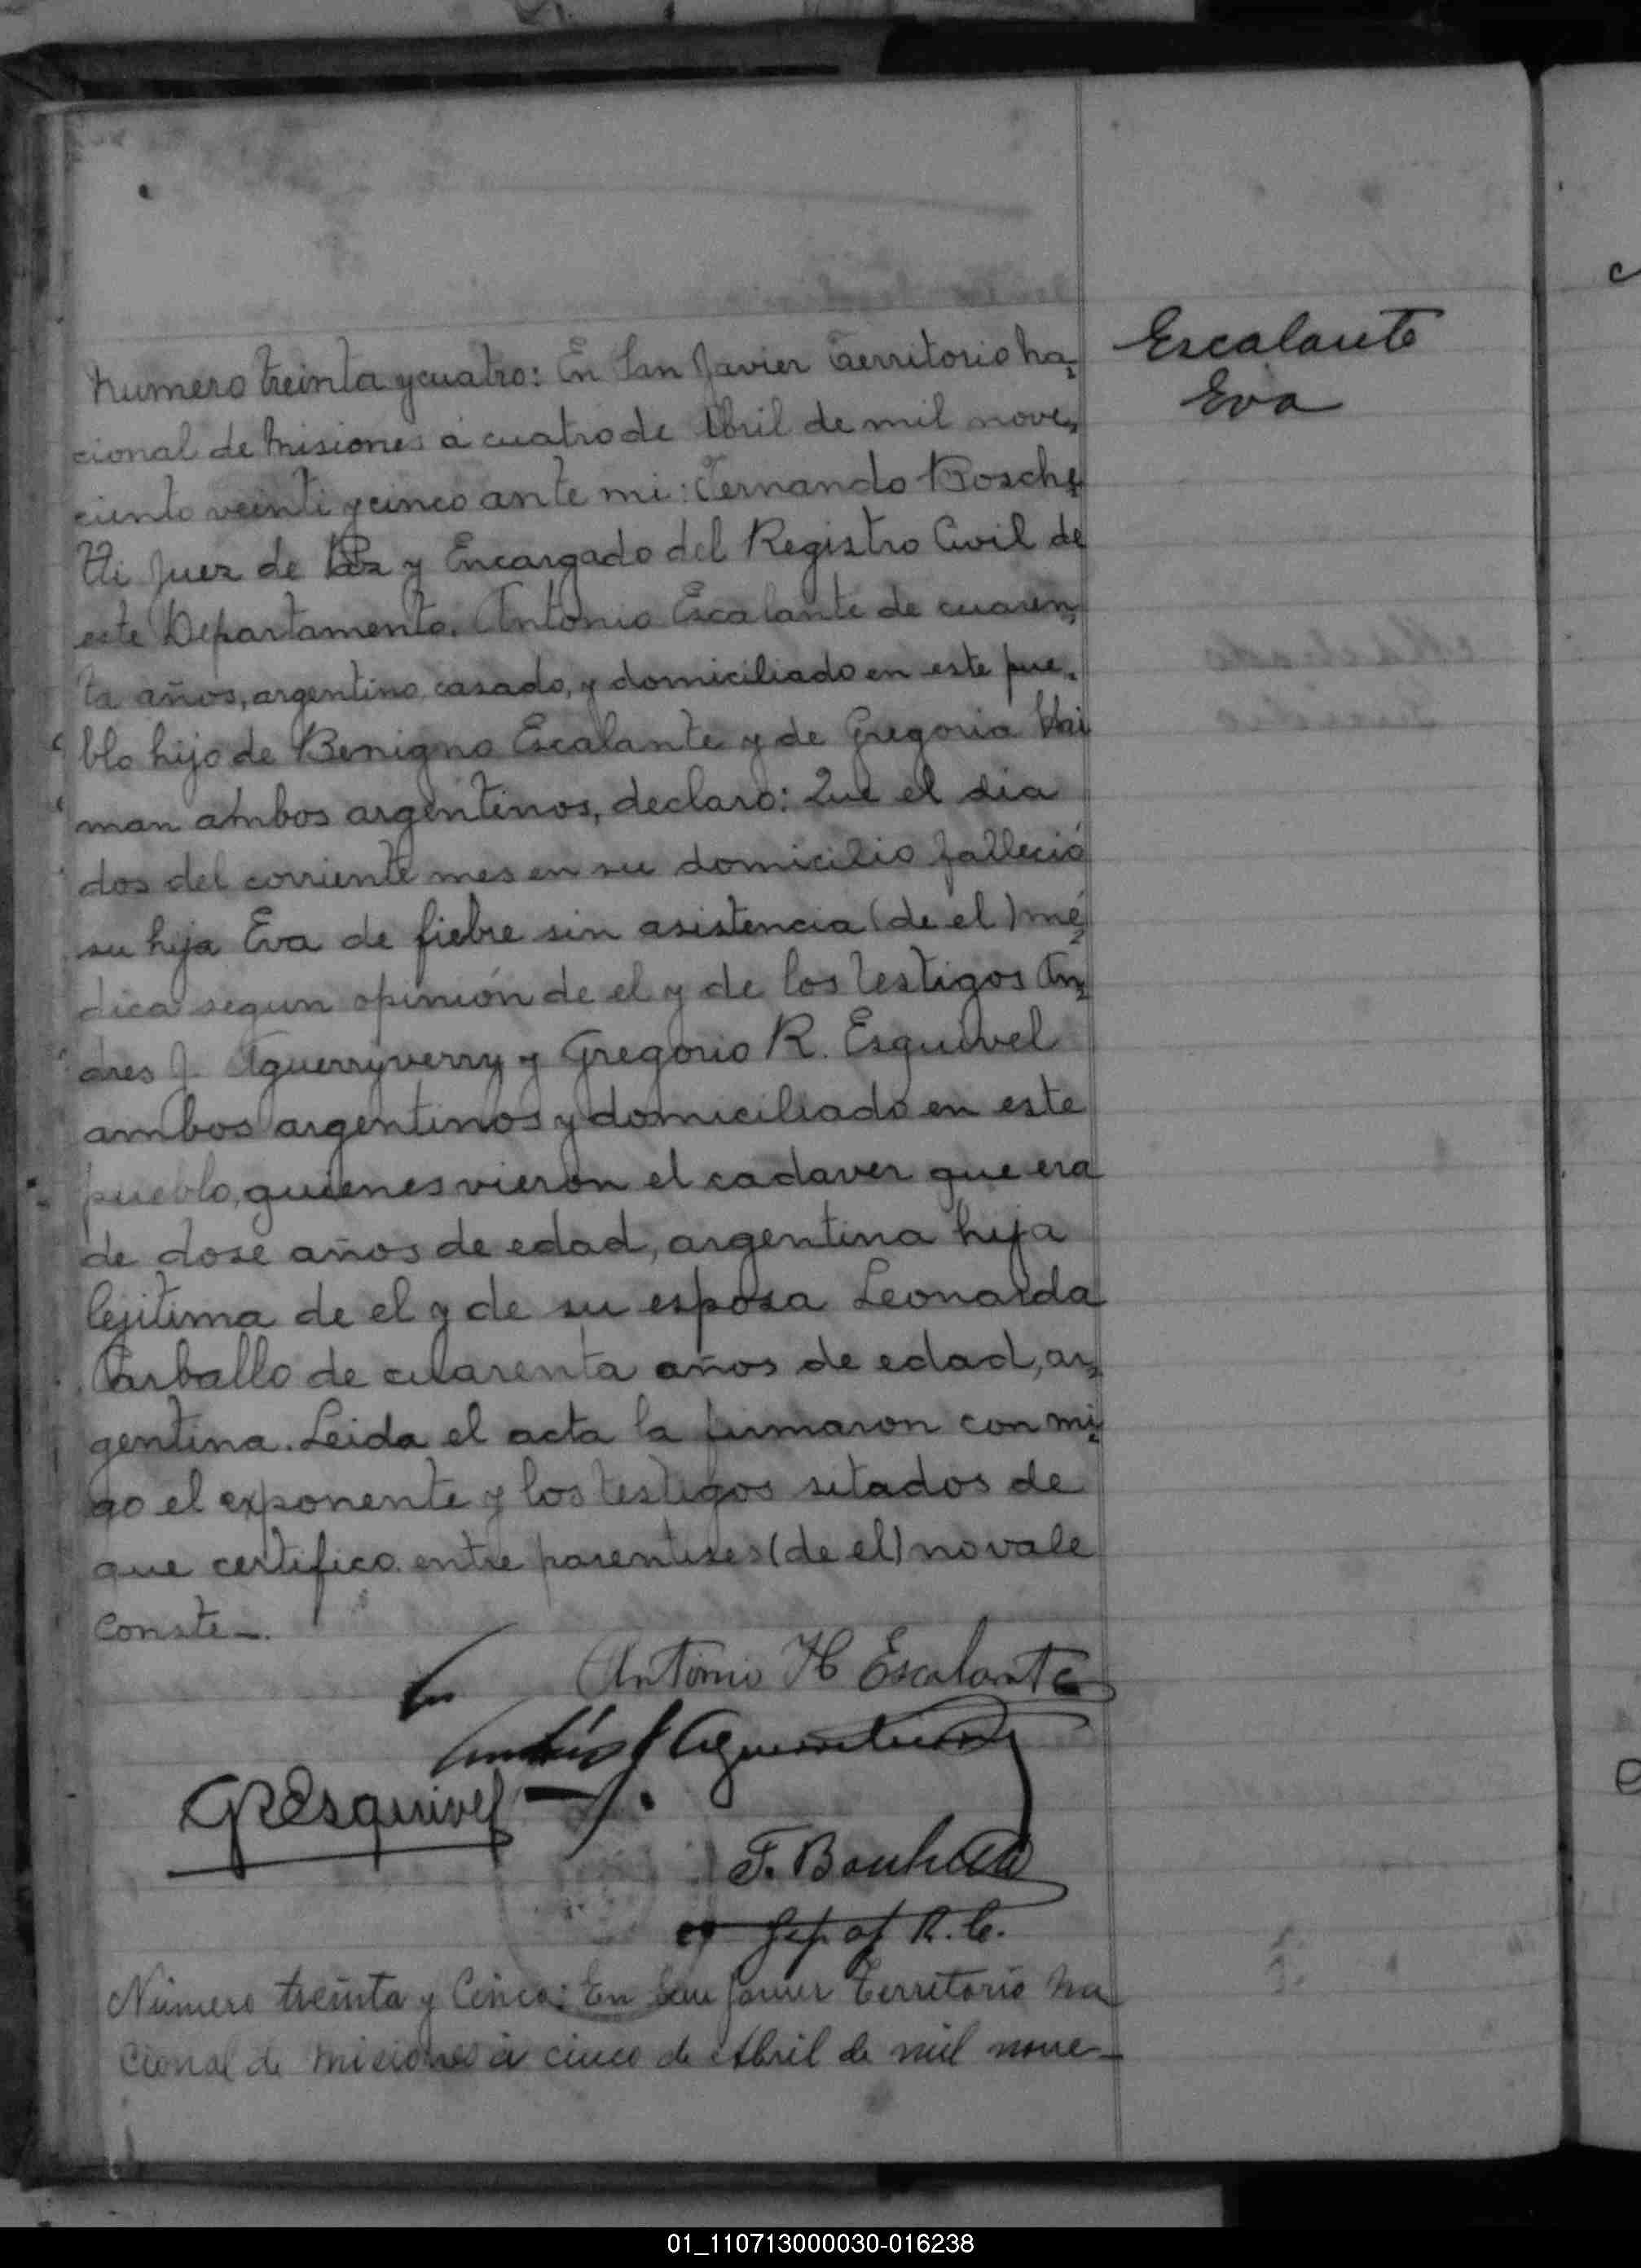 Escalante
Eva
Numero treinta y cuatro: En San Javier Territorio Na=
cional de Misiones a cuatro de Abril de mil nove=
ciento veinti y cinco ante mi: Fernando Bosche
tti Juez de Paz y Encargado del Registro Civil de
este Departamento. Antonio Escalante de cuaren=
ta años, argentino casado, y domiciliado en este pue=
blo hijo de Benigno Escalante y de Gregoria Vai
man ambos argentinos, declaro: Que el dia
dos del corriente mes en su domicilio falleció
su hija Eva de fiebre sin asistencia (de el) mé=
dica segun opinión de el y de los testigos An=
dres J. Aguerryverry y Gregorio R. Esquivel
ambos argentinos y domiciliado en este
pueblo, quienes vieron el cadaver que era
de dose años de edad, argentina hija
lejitima de el y de su esposa Leonarda
Carballo de cuarenta años de edad, ar=
gentina. Leida el acta la firmaron con mi=
go el exponente y los testigos sitados de
que certifico. entre parentises (de el) no vale
Conste—.
Antonio H Escalante
Andrés J
GREsquivel
F.
Jef. of R. C.
Número treinta y Cinco: En San Javier Territorio Na
cional de Misiones á cinco de Abril de mil nove—
01_110713000030-016238